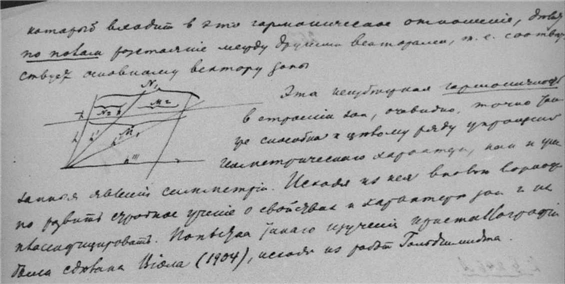 который входит в это гармоническое отношение, делит
по полам расстояние между другими векторами, т.е. соответ
ствует основному вектору зоны
Эта нецубурная гармоничность
в строении зон, очевидно, точно так
же способна к целому ряду упрощений
геометрического характера, как и ука
занные явления симметрии. Исходя из нея вполне возмож
но развить строгое учение о свойствах и характере зон и их
классифицировать. Попытка такого изучения кристаллографии
была сделана Виола (1904), исходя из работ Гольдшмидта.